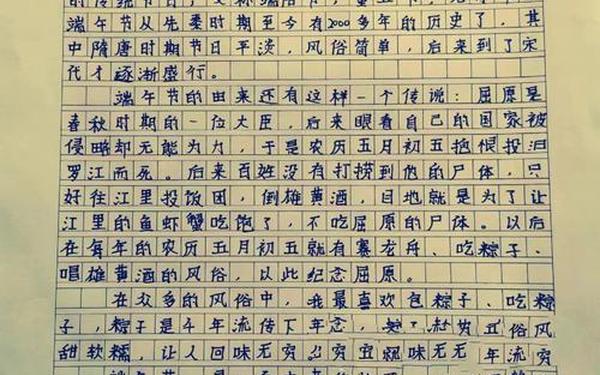 的传统节日，又称端阳节，
端午节从先秦时期至今有2000多年的历史了，其
中隋唐时期节日平淡，风俗简单，后来到了宋
代才逐渐盛行。
端午节的由来还有这样一个传说：屈原是
春秋时期的一位大臣，后来眼看自己的国家被
侵略却无能为力，于是农历五月初五抱恨投汨
罗江而死。后来百姓没有打捞到他的尸体，只
好往江里投饭团，倒雄黄酒，目地就是为了让
江里的鱼虾蟹吃饱了，不吃屈原的尸体。以后
在每年的农历五月初五就有赛龙舟、吃粽子、
唱雄黄酒的风俗，以此纪念屈原。
在众多的风俗中，我最喜欢包粽子、吃粽
子，粽子是年流传下年念，俗风
甜软糯，让人回味无穷味无无年流穷